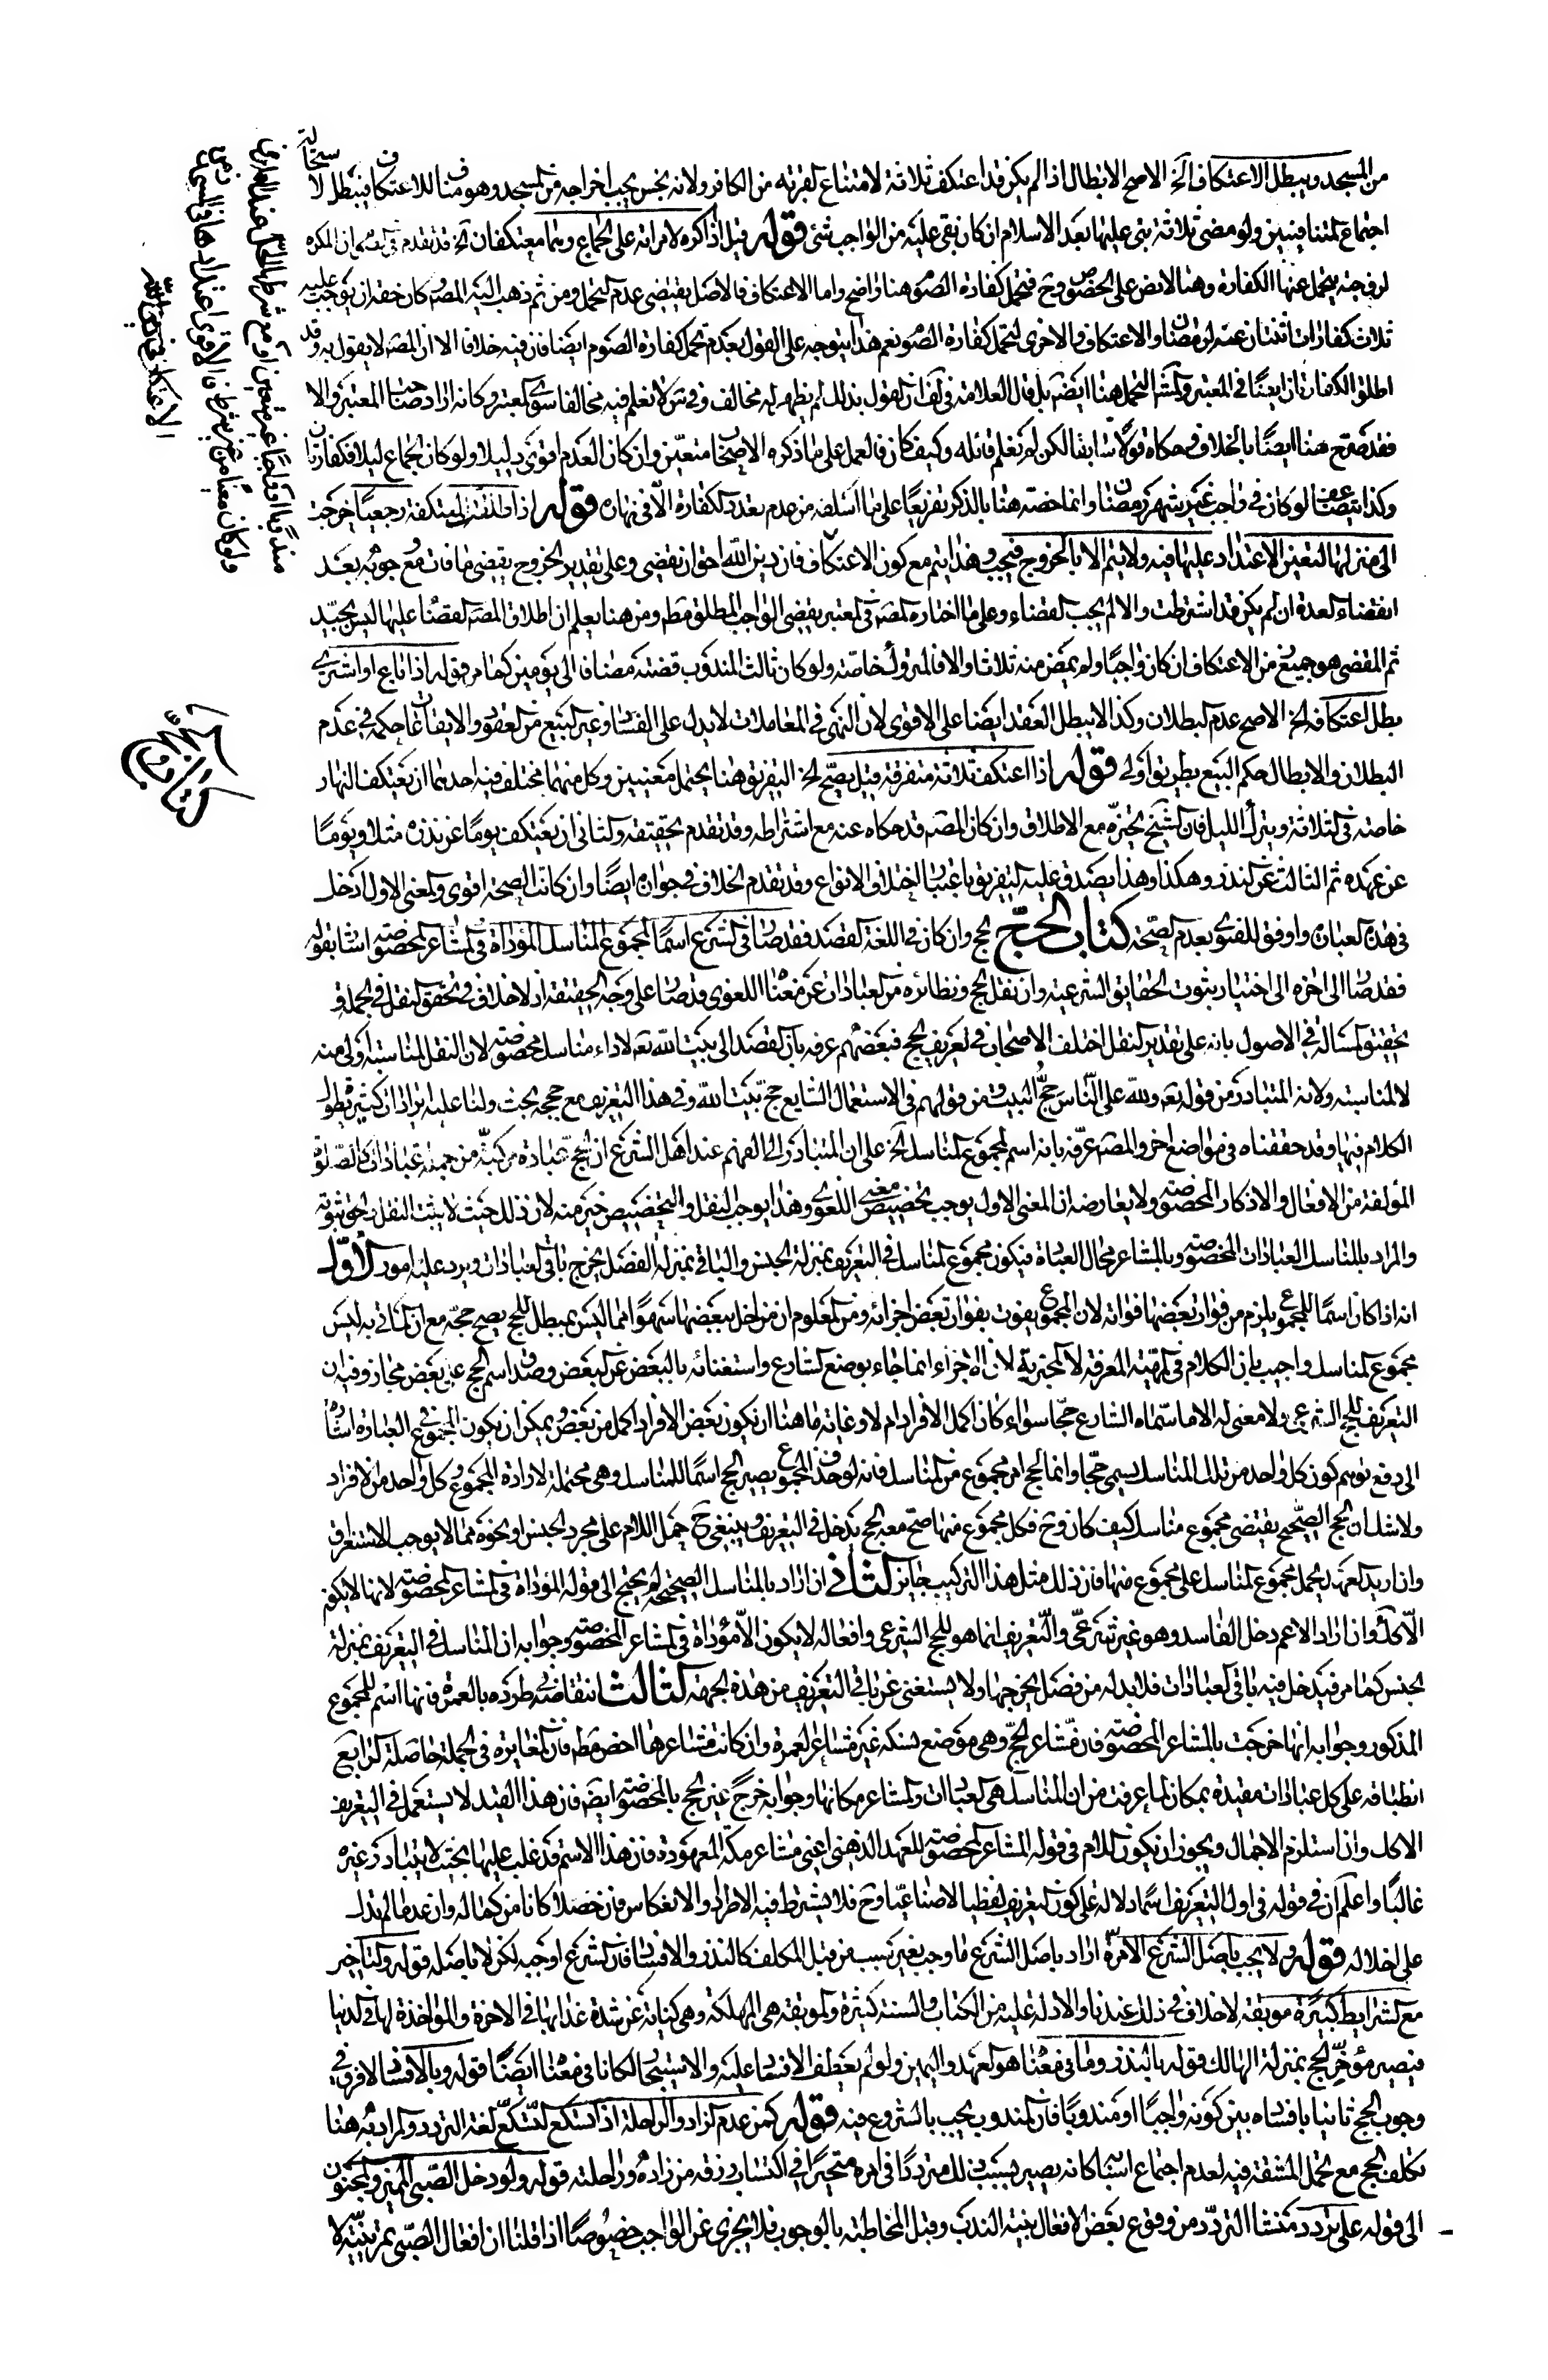 من المسجد ويبطل الاعتكاف الخ الاصح الابطال اذا لم يكن قد اعتكف ثلاثة لامتناع القربة من الكافر ولانه نجس يجب اخراجه من المسجد وهو مناف للاعتكاف فيبطل لاستحالة
اجتماع المتنافيين ولو مضى ثلاثة بنى عليها بعد الاسلام ان كان بقي عليه من الواجب شئ قوله قيل اذا اكره امراته على الجماع وهما معتكفان الخ قد تقدم في الصوم ان المكره
لزوجته يتحمل عنها الكفارة وهنا لا نص على الخصوص وح فتحمل كفارة الصوم هنا واضح واما الاعتكاف فالاصل يقتضي عدم التحمل ومن ثم ذهب اليه المصر وكان حقه ان يوجب عليه
ثلاث كفارات اثنتان عنه لرمضان والاعتكاف والاخرى لتحمل كفارة الصوم نعم هذا يتوجه على القول بعدم تحمل كفارة الصوم ايضا فان فيه خلافا الا ان المصه لا يقول به وقد
اطلق الكفارتان ايضا في المعتبر والتحمل هنا ايضه بل قال العلامة في لف ان القول بذلك لم يظهر له مخالف وفي س لا نعلم فيه مخالفا سوى المعتبر وكانه اراد صاحب المعتبر والا
فقد صرح هنا ايضا بالخلاف وحكاه قولا سابقا لكن لم نعلم قائله وكيف كان فالعمل على ما ذكره الاصحاب متعين وان كان العدم اقوى دليلا ولو كان الجماع ليلا فكفارتان
وكذا يتضاعف لو كان في واجب غير شهر رمضان وانما خصه هنا بالذكر تفريعا على ما اسلفه من عدم تعدد الكفارة الا في نهاره قوله اذا طلقت المعتكفة رجعيا خرجت
الى منزلها لتعين الاعتداد عليها فيه ولا يتم الا بالخروج فيجب وهذا يتم مع كون الاعتكاف فان دين الله احق ان يقضى وعلى تقدير الخروج يقضي ما فات مع وجوبه بعد
انقضاء العدة ان لم يكن قد اشترطت والا لم يجب القضاء وعلى ما اختاره المصه في المعتبر يقضي الواجب المطلق مطه ومن هنا يعلم ان اطلاق المصه القضاء عليها ليس بجيد
ثم المقضى هو جميع زمن الاعتكاف ان كان واجبا ولم يمض منه ثلاثا والا فالمتروك خاصة ولو كان ثالث المندوب قضته مضافا الى يومين كما مر قوله اذا باع او اشترى
بطل اعتكافه الخ الاصح عدم البطلان وكذا لا يبطل العقد ايضا على الاقوى لان النهي في المعاملات لا يدل على الفساد وغير البيع من العقود والايقاعات حكمه في عدم
البطلان والابطال حكم البيع بطريق اولى قوله اذا اعتكف ثلاثة متفرقة قيل يصح الخ التفريق هنا يحتمل معنيين وكل منهما مختلف فيه احدهما ان يعتكف النهار
خاصة في الثلاثة ويترك الليل فان الشيخ يجيزه مع الاطلاق وان كان المصه قد حكاه عنه مع اشتراطه وقد تقدم تحقيقه والثاني ان يعتكف يوما عن نذره مثلا ويوما
عن عهده ثم الثالث عن النذر وهكذا وهذا يصدق عليه التفريق باعتبار اختلاف الانواع وقد تقدم الخلاف في جوازه ايضا وان كانت الصحة اقوى والمعنى الاول ادخل
في هذه العبارة واوفق للفتوى بعدم الصحة كتاب الحج الحج وان كان في اللغة القصد فقد صار في الشرع اسما لمجموع المناسك المؤداة في المشاعر المخصوصة اشار بقوله
فقد صار الى اخره الى اختيار ثبوت الحقايق الشرعية وان نقل الحج ونظائره من العبادات عن معناه اللغوي قد صار على وجه الحقيقة اذ لا خلاف في تحقق النقل في الجملة و
تحقيق المسالة في الاصول بانه على تقدير النقل اختلف الاصحاب في تعريف الحج فبعضهم عرفه بان القصد الى بيت الله تعه لاداء مناسك مخصوصة لان النقل لمناسبة اولى منه
لا لمناسبة ولانه المتبادر من قوله تعه ولله على الناس حج البيت ومن قولهم في الاستعمال الشايع حج بيت الله وفي هذا التعريف مع حججه بحث ولنا عليه ايرادات كثيرة يطول
الكلام فيها وقد حققناه في مواضع اخر والمصه عرفه بانه اسم لمجموع المناسك الخ على ان المتبادر الى الفهم عند اهل الشرع ان الحج عبادة مركبة من جملة عبادات كالصلوة
المؤلفة من الافعال والاذكار المخصوصة ولا يعارضه ان المعنى الاول يوجب تخصيص معنى اللغوي وهذا يوجب النقل والتخصيص خير منه لان ذلك حيث لا يثبت النقل والحق ثبوته
والمراد بالمناسك العبادات المخصوصة وبالمشاعر محال العبادة فيكون مجموع المناسك في التعريف بمنزلة الجنس والباقي بمنزلة الفصل يخرج باقي العبادات ويرد عليه امور الاول
انه اذا كان اسما للمجموع يلزم من فوات بعضها فواته لان المجموع يفوت بفوات بعض اجزائه ومن المعلوم ان من اخل ببعضها سهوا مما ليس بمبطل للحج يصح حجه مع ان الماتي به ليس
مجموع المناسك واجيب بان الكلام في الماهية المعرفة لا المجزية لان الاجزاء انما جاء بوضع الشارع واستغنائه بالبعض عن البعض وصدق اسم الحج على بعض مجاز وفيه ان
التعريف للحج الشرعي ولا معنى له الا ما سماه الشارع حجا سواء كان اكمل الافراد ام لا وغاية ما هنا ان يكون بعض الافراد اكمل من بعض ويمكن ان يكون المجموع في العبارة اشارة
الى دفع توهم كون كل واحد من تلك المناسك يسمى حجا وانما الحج امر مجموع من المناسك فانه لو حذف المجموع يصير الحج اسما للمناسك وهي محتملة لارادة المجموع وكل واحد من الافراد
ولا شك ان الحج الصحيح يقتضي مجموع مناسك كيف كان وح فكل مجموع منها صح معه الحج يدخل في التعريف وينبغي ح حمل اللام على مجرد الجنس او نحوه مما لا يوجب الاستغراق
وان اريد العهد يحمل مجموع المناسك على مجموع منها فان ذلك مثل هذا التركيب جايز الثاني ان اراد بالمناسك الصحيحة لم يحتج الى قوله المؤداة في المشاعر المخصوصة لانها لا يكون
الا كك وان اراد الاعم دخل الفاسد وهو غير شرعي والتعريف انما هو للحج الشرعي وافعاله لا يكون الا مؤداة في المشاعر المخصوصة وجوابه ان المناسك في التعريف بمنزلة
الجنس كما مر فيدخل فيه باقي العبادات فلا بد له من فصل يخرجها ولا يستغنى عن باقي التعريف من هذه الجهة الثالث انتقاض طرده بالعمرة فانها اسم للمجموع
المذكور وجوابه انها خرجت بالمشاعر المخصوصة فان مشاعر الحج وهي موضع نسكه غير مشاعر العمرة وان كانت مشاعرها اخص مطه فان المغايرة في الجملة حاصلة الرابع
انطباقه على كل عبادات مقيدة بمكان لما عرفت من ان المناسك هي العبادات والمشاعر مكانها وجوابه خرج غير الحج بالمخصوصة ايضه فان هذا القيد لا يستعمل في التعريف
الا كك وان استلزم الاجمال ويجوز ان يكون اللام في قوله المشاعر المخصوصة للعهد الذهني اعني مشاعر مكة المعهودة فان هذا الاسم قد غلب عليها بحيث لا يتبادر غيره
غالبا واعلم ان في قوله في اول التعريف اسما دلالة على كون التعريف لفظيا لا صناعيا وح فلا يشترط فيه الاطراد والانعكاس فان حصلا كانا من كماله وان عدما لم يدل
على اخلاله قوله ولا يجب باصل الشرع الا مرة اراد باصل الشرع ما وجب بغير سبب من قبل المكلف كالنذر والافساد فان الشرع اوجبه لكن لا باصله قوله والتاخير
مع الشرايط كبيرة موبقة لا خلاف في ذلك عندنا والادلة عليه من الكتاب والسنة كثيرة والموبقة هي المهلكة وهي كناية عن شدة عذابها في الاخرة والمؤاخذة لها في الدنيا
فيصير مؤخر الحج بمنزلة الهالك قوله بالنذر وما في معناه هو العهد واليمين ولو لم يعطف الافساد عليه والاستيجار لكانا في معناه ايضا قوله وبالافساد لا فرق في
وجوب الحج ثانيا بافساده بين كونه واجبا او مندوبا فان المندوب يجب بالشروع فيه قوله كمن عدم الزاد والراحلة اذا تسكع التسكع لغة التردد والمراد به هنا
تكلف الحج مع تحمل المشقة فيه لعدم اجتماع اسبابه كانه يصير بسبب ذلك مترددا في امره متحيرا في اكتساب رزقه من زاده وراحلته قوله ولو دخل الصبي المميز والمجنون
الى قوله على تردد منشا التردد من وقوع بعض الافعال بنية الندب وقبل المخاطبة بالوجوب فلا يجزي عن الواجب خصوصا اذا قلنا ان افعال الصبي تمرينية لا
كتاب الحج